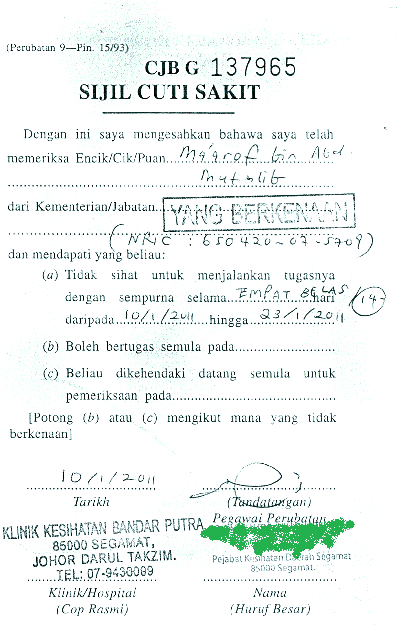 (Perubatan 9—Pin. 15/93)
CJB G 137965
SIJIL CUTI SAKIT
Dengan ini saya mengesahkan bahawa saya telah
memeriksa Encik/Cik/Puan Ma'arof bin Abd.
Mutalib
dari Kementerian/Jabatan YANG BERKENAAN
(NRIC : 650420-07-5709)
dan mendapati yang beliau:
(a) Tidak sihat untuk menjalankan tugasnya
dengan sempurna selama EMPAT BELAS hari (14)
daripada 10/1/2011 hingga 23/1/2011
(b) Boleh bertugas semula pada
(c) Beliau dikehendaki datang semula untuk
pemeriksaan pada
[Potong (b) atau (c) mengikut mana yang tidak
berkenaan]
10/1/2011
Tarikh
(Tandatangan)
Pegawai Perubatan
KLINIK KESIHATAN BANDAR PUTRA
85000 SEGAMAT,
JOHOR DARUL TAKZIM.
TEL: 07-9430099
Pejabat Kesihatan Daerah Segamat
85000 Segamat.
Klinik/Hospital
(Cop Rasmi)
Nama
(Huruf Besar)